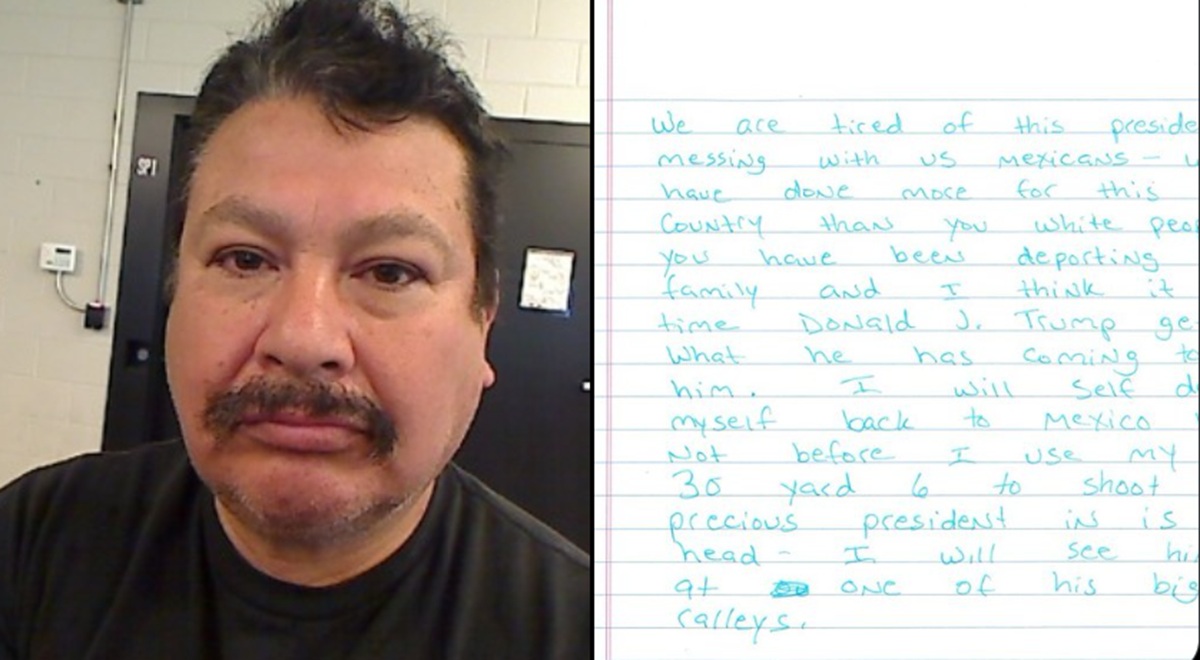 We are tired of this preside
messing with us mexicans -
have done more for this
Country than you white peo
you have been deporting
family and I think it
time Donald J. Trump ge
What he has coming to
him. I will self d
myself back to mexico
Not before I use my
30 yard 6 to shoot
precious president in is
head - I will see hi
at one of his big
ralleys.